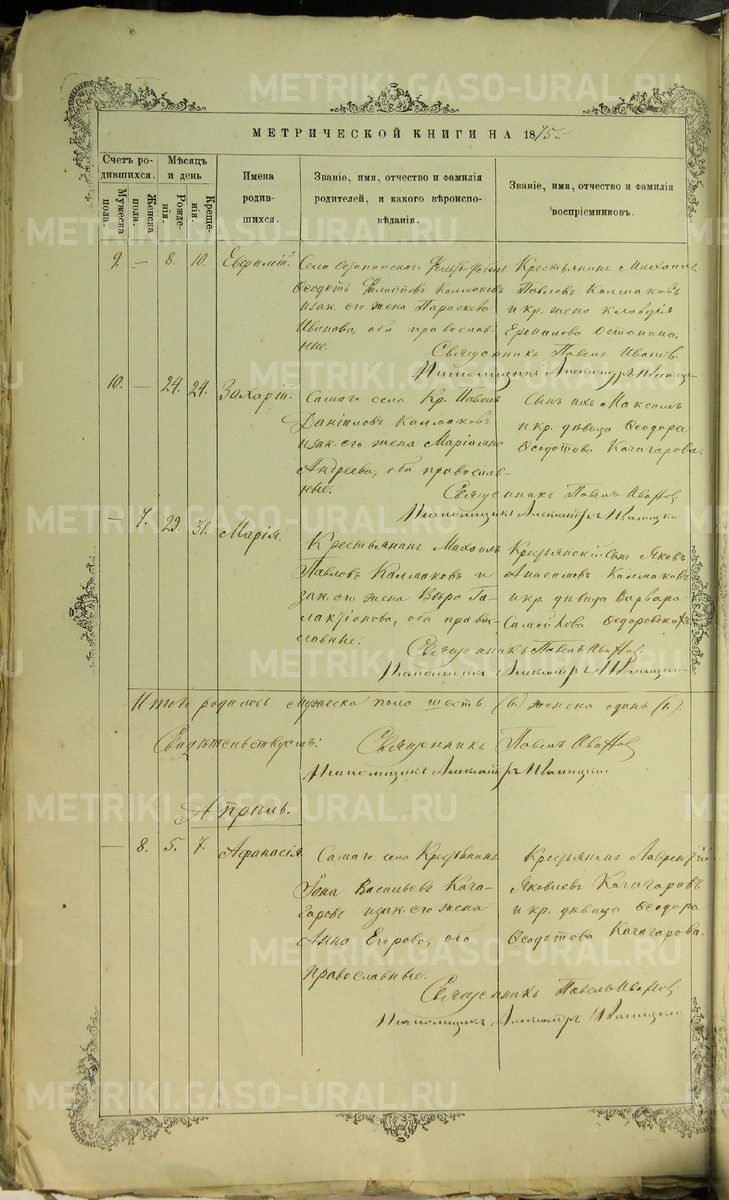 МЕТРИЧЕСКОЙ КНИГИ НА 1875
Счетъ родившихся.
Мужеска пола.
Женска пола.
Мѣсяцъ и день
Рожденія.
Крещенія.
Имена родившихся.
Званіе, имя, отчество и фамилія родителей, и какого вѣроисповѣданія.
Званіе, имя, отчество и фамилія воспріемниковъ.
9. — 8. 10. Евѳимій.
Села
Ѳеодотъ Филипповъ Калмаковъ
и зак. его жена Параскева
Иванова, оба православ-
ные.
Крестьянинъ Михаилъ
Павловъ Калмаковъ
и кр. жена Клавдія
Ермилова Останина.
Священникъ Павелъ Ивановъ.
Псаломщикъ Александръ
10. — 24. 24. Захарій.
Самаго села Кр. Павелъ
Даніиловъ Калмаковъ
и зак. его жена Маріамна
Андреева, оба православ-
ные.
Сынъ ихъ Максимъ
и кр. дѣвица Ѳеодора
Ѳеодотова Качагарова.
Священникъ Павелъ Ивановъ
Псаломщикъ Александръ
— 7. 29. 31. Марія.
Крестьянинъ Михаилъ
Павловъ Калмаковъ и
зак. его жена Вѣра Га-
лактіонова, оба право-
славные.
Крестьянскій сынъ Яковъ
Анисимовъ Калмаковъ
и кр. дѣвица Варвара
Самойлова Ѳедоровскихъ
Священникъ Павелъ Ивановъ.
Псаломщикъ Александръ
Итого родилось мужеска пола шесть (6.) женска одинъ (1.)
Свидѣтельствуемъ:
Священникъ Павелъ Ивановъ
Псаломщикъ Александръ
Апрѣль.
— 8. 5. 7. Аѳанасія.
Самаго села Крестьянинъ
Іона Васильевъ Кача-
гаровъ и зак. его жена
Анна Егорова, оба
православные.
Крестьянинъ Лаврентій
Яковлевъ Качагаровъ
и кр. дѣвица Ѳеодора
Ѳеодотова Качагарова.
Священникъ Павелъ Ивановъ.
Псаломщикъ Александръ
METRIKI.GASO-URAL.RU